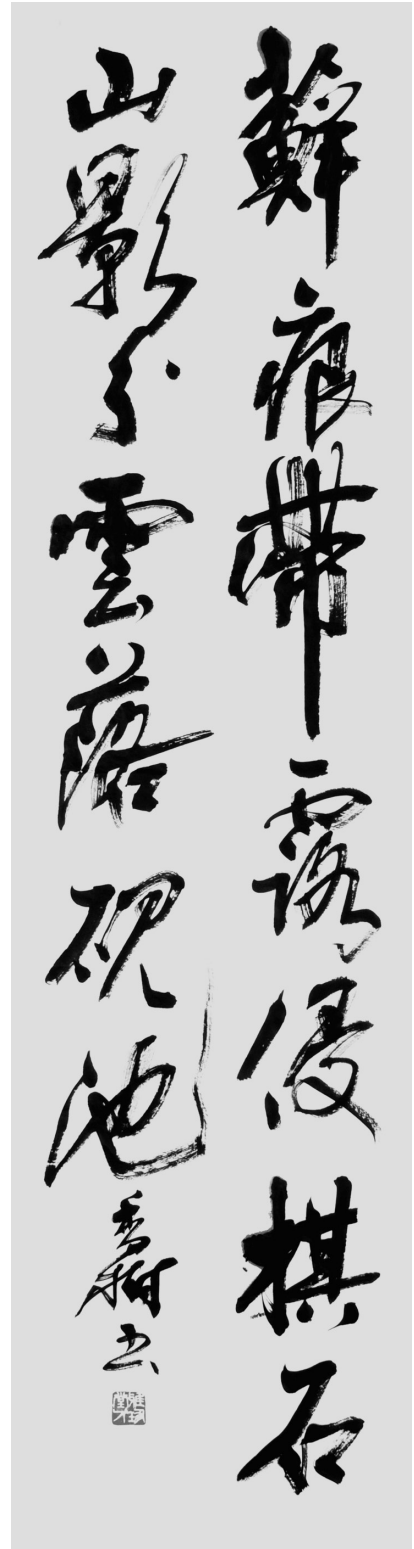 蘚痕帶露侵棋石
山影分雲落硯池
書